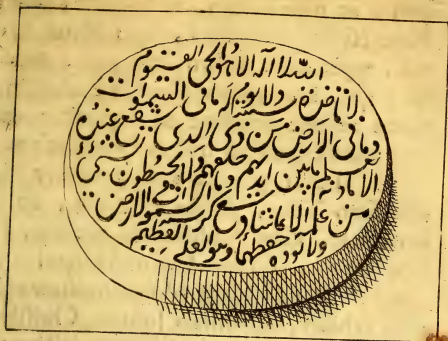 الله لا اله الا هو الحى القيوم
لا تاخذه سنة ولا نوم له مافى السموات
ومافى الارض من ذى الذى يشفع عنده
الا باذنه يعلم مابين ايديهم وما خلفهم ولا يحيطون بشىء
من علمه الا بماشاء وسع كرسيه السموات والارض
ولا يوده حفظهما وهو العلى العظيم